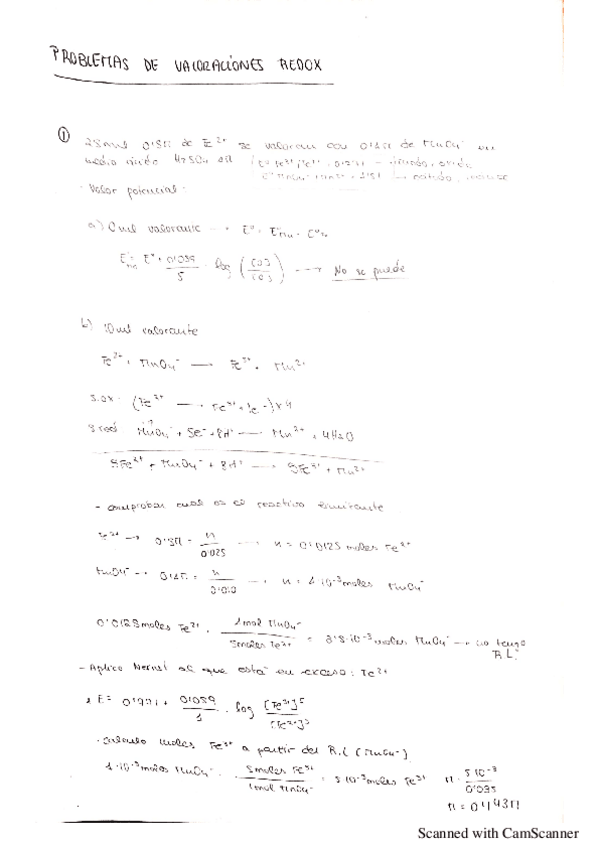 PROBLEMAS DE VALORACIONES REDOX
①
25ml 0'5M de Fe²⁺ se valoran con 0'1M de MnO₄⁻ en
medio ácido H₂SO₄
Valor potencial:
a) 0ml valorante
No se puede
b) 10ml valorante
Fe²⁺ + MnO₄⁻ → Fe³⁺ + Mn²⁺
S.ox: (Fe²⁺ → Fe³⁺ + 1e⁻)
S red MnO₄⁻ + 5e⁻ + 8H⁺ → Mn²⁺ + 4H₂O
5Fe²⁺ + MnO₄⁻ + 8H⁺ → 5Fe³⁺ + Mn²⁺
- comprobar cual es el reactivo limitante
Fe²⁺ → 0'5M = n/0'025 → n = 0'0125 moles Fe²⁺
MnO₄⁻ → 0'1M = n/0'010 → n = 1·10⁻³ moles MnO₄⁻
0'0125 moles Fe²⁺ · 1mol MnO₄⁻/5moles Fe²⁺ = 2'5·10⁻³ moles MnO₄⁻ → no tengo
R.L.
- Aplico Nernst al que está en exceso: Fe²⁺
E = 0'771 + 0'059/1 · log [Fe³⁺]/[Fe²⁺]
· calculo moles Fe³⁺ a partir del R.L (MnO₄⁻)
1·10⁻³ moles MnO₄⁻ · 5moles Fe³⁺/1mol MnO₄⁻ = 5·10⁻³ moles Fe³⁺ M = 5·10⁻³/0'035
Scanned with CamScanner